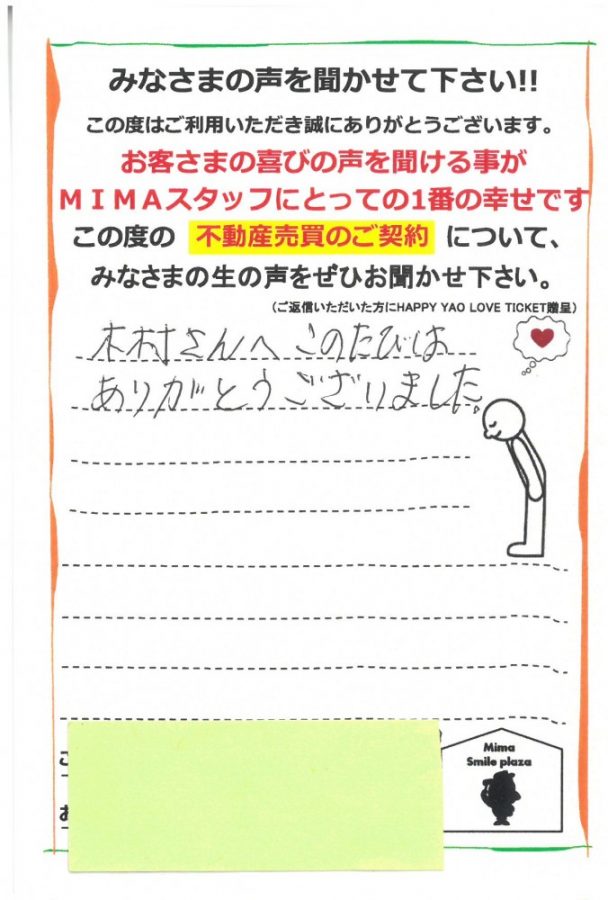 みなさまの声を聞かせて下さい!!
この度はご利用いただき誠にありがとうございます。
お客さまの喜びの声を聞ける事が
ＭＩＭＡスタッフにとっての1番の幸せです
この度の 不動産売買のご契約 について、
みなさまの生の声をぜひお聞かせ下さい。
(ご返信いただいた方にHAPPY YAO LOVE TICKET贈呈)
木村さんへ このたびは
ありがとうございました。
Mima
Smile plaza